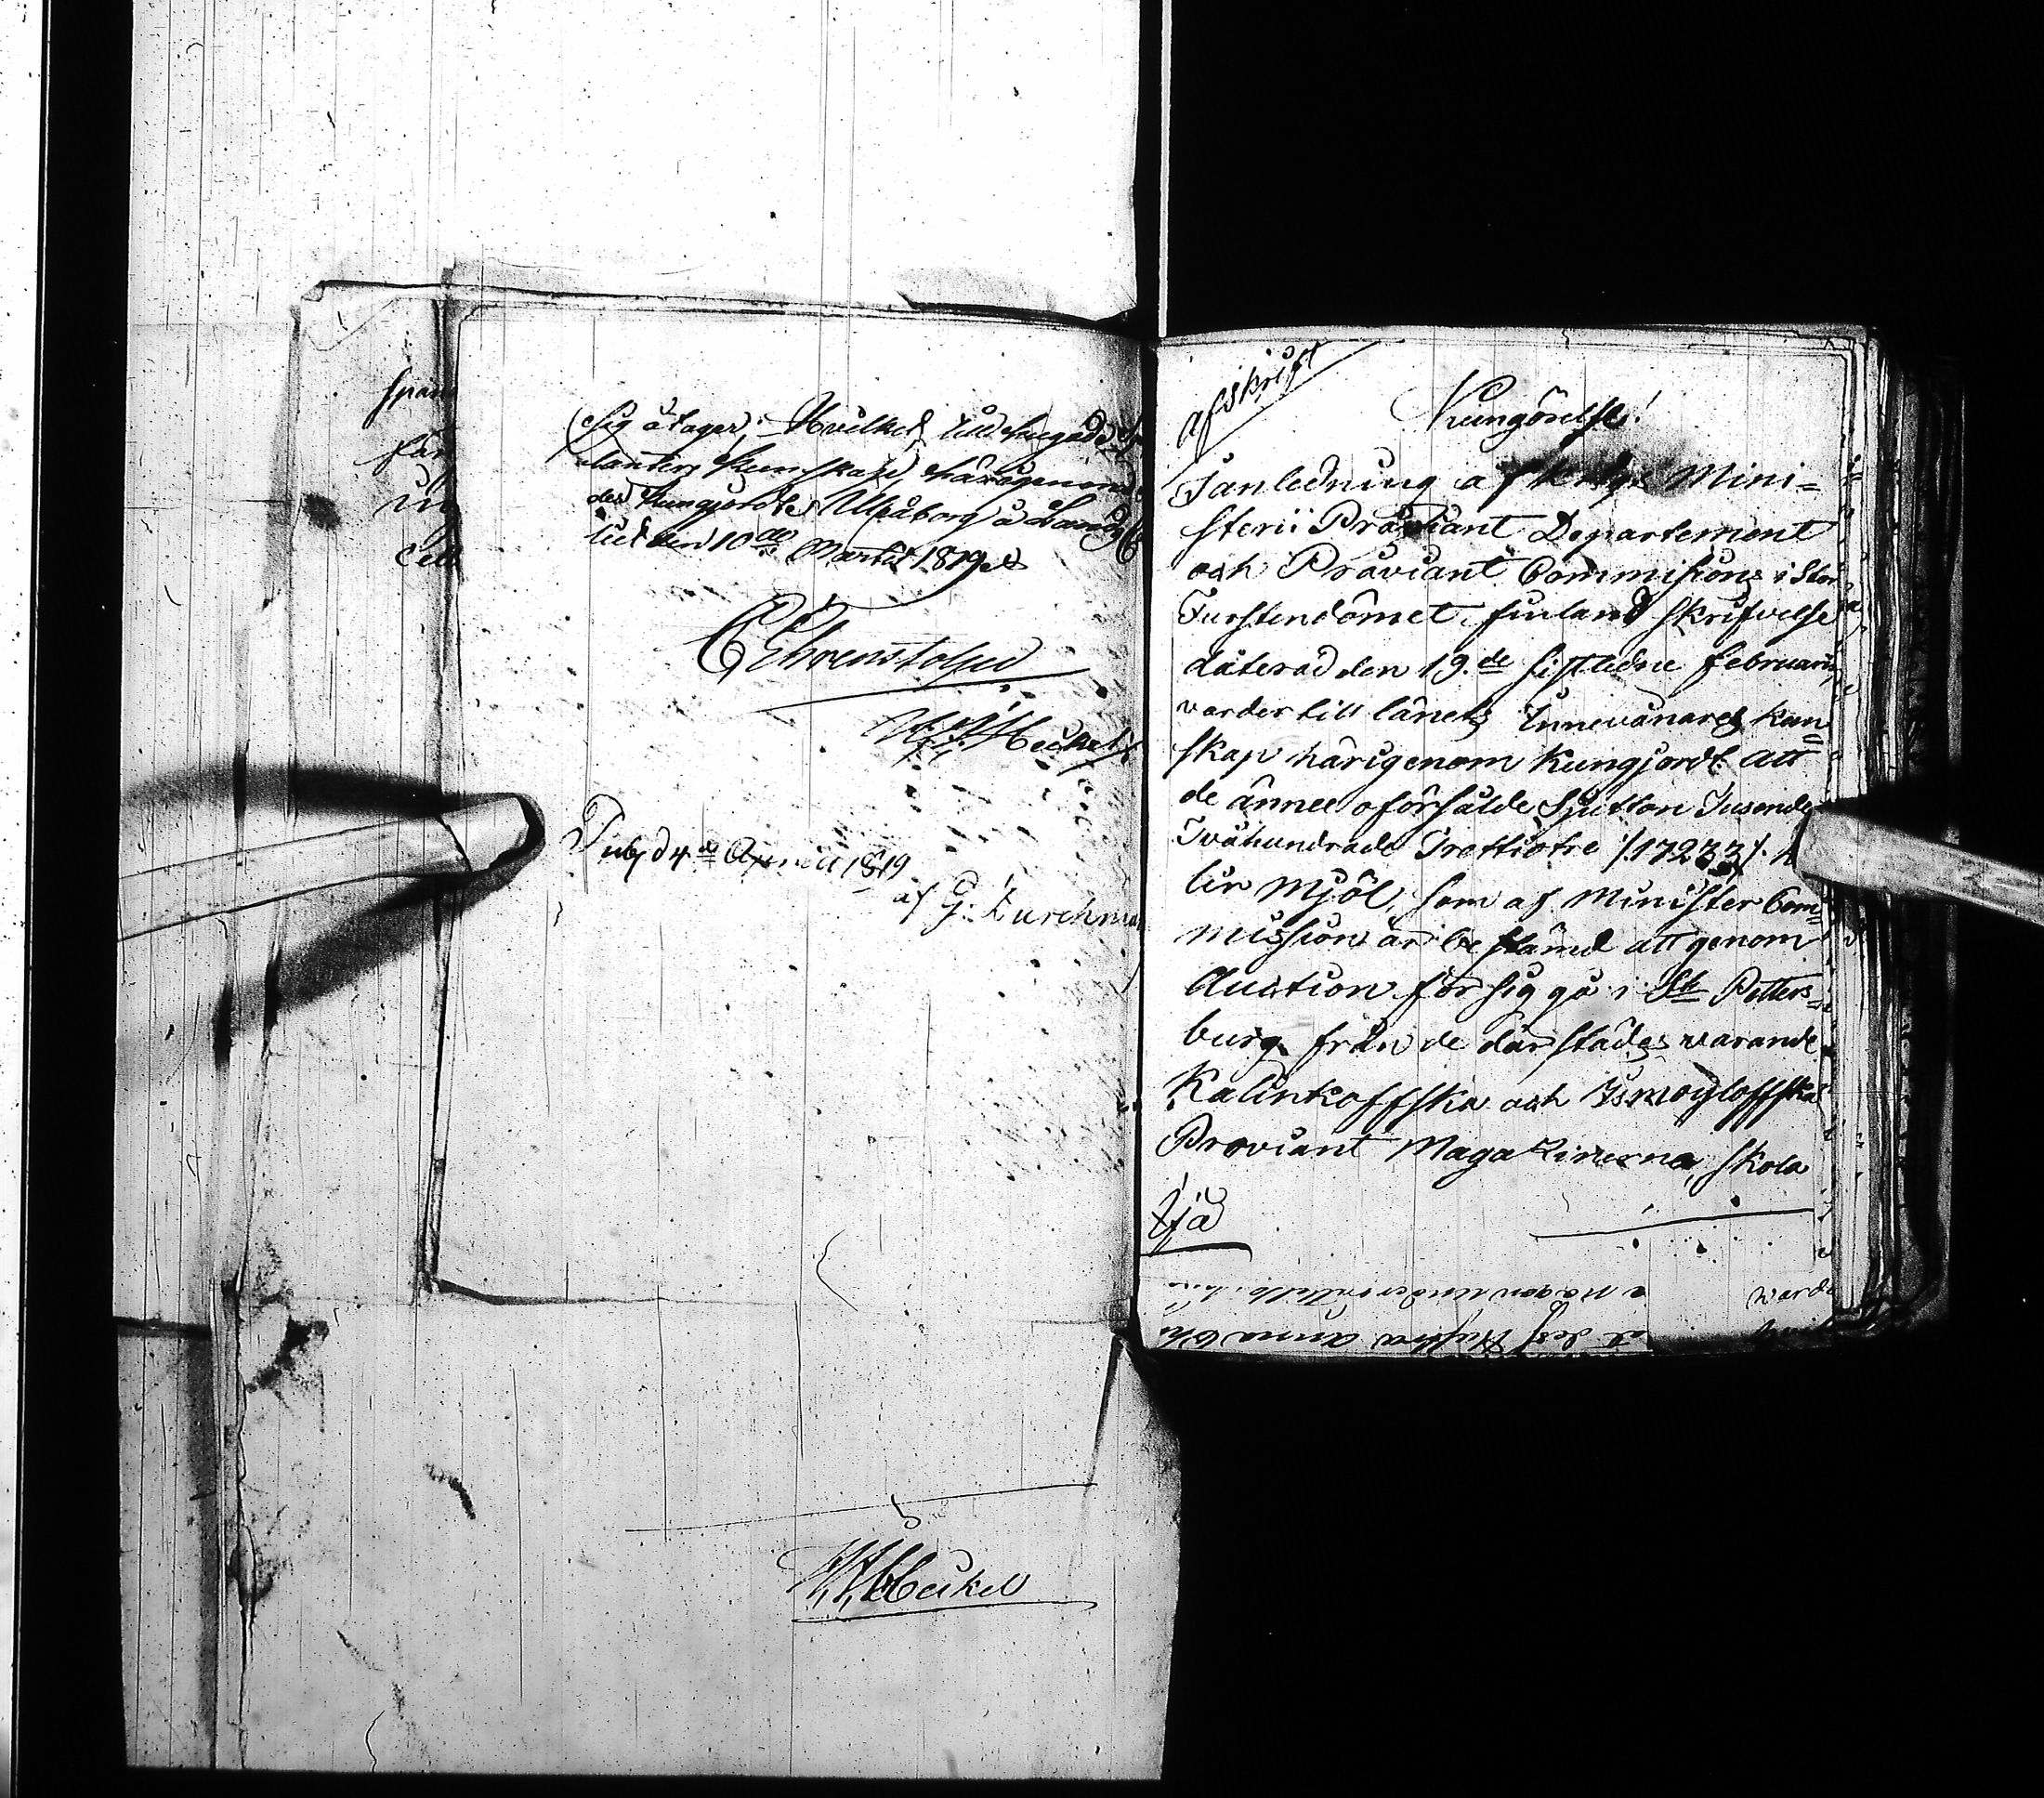 sig åtager; Hvilket till hugade Spe
lanters kunskap härigenom
der kungjordt. Uleåborg å Lands C
liet den 10de Martii 1819.
C Ehrenstolpe
H. H. Heikel
Publ d 4de April 1819
af G: Zurchma
H, H, Heikel
afskrift
Kungörelse!
I anledning af Krigs Mini=
sterii Proviant Departement
och Proviant Commissions i Stor
Furstendömet Finland skrifvelse
daterad den 19.de sistledne Februarii,
varder till länets Innevånares kun=
skap härigenom kungjordt att
de ännu oförsålde Sjutton Tusende
Tvåhundrade Trettiotre /:17233:/
lir Mjöl, som af Minister Com=
mission är bestämd att genom
Auction för sig gå i St. Petters=
burg från de därstädes varande
Kalinkoffska och Ismoyloffska
Proviant Magazinerna, skola
varde